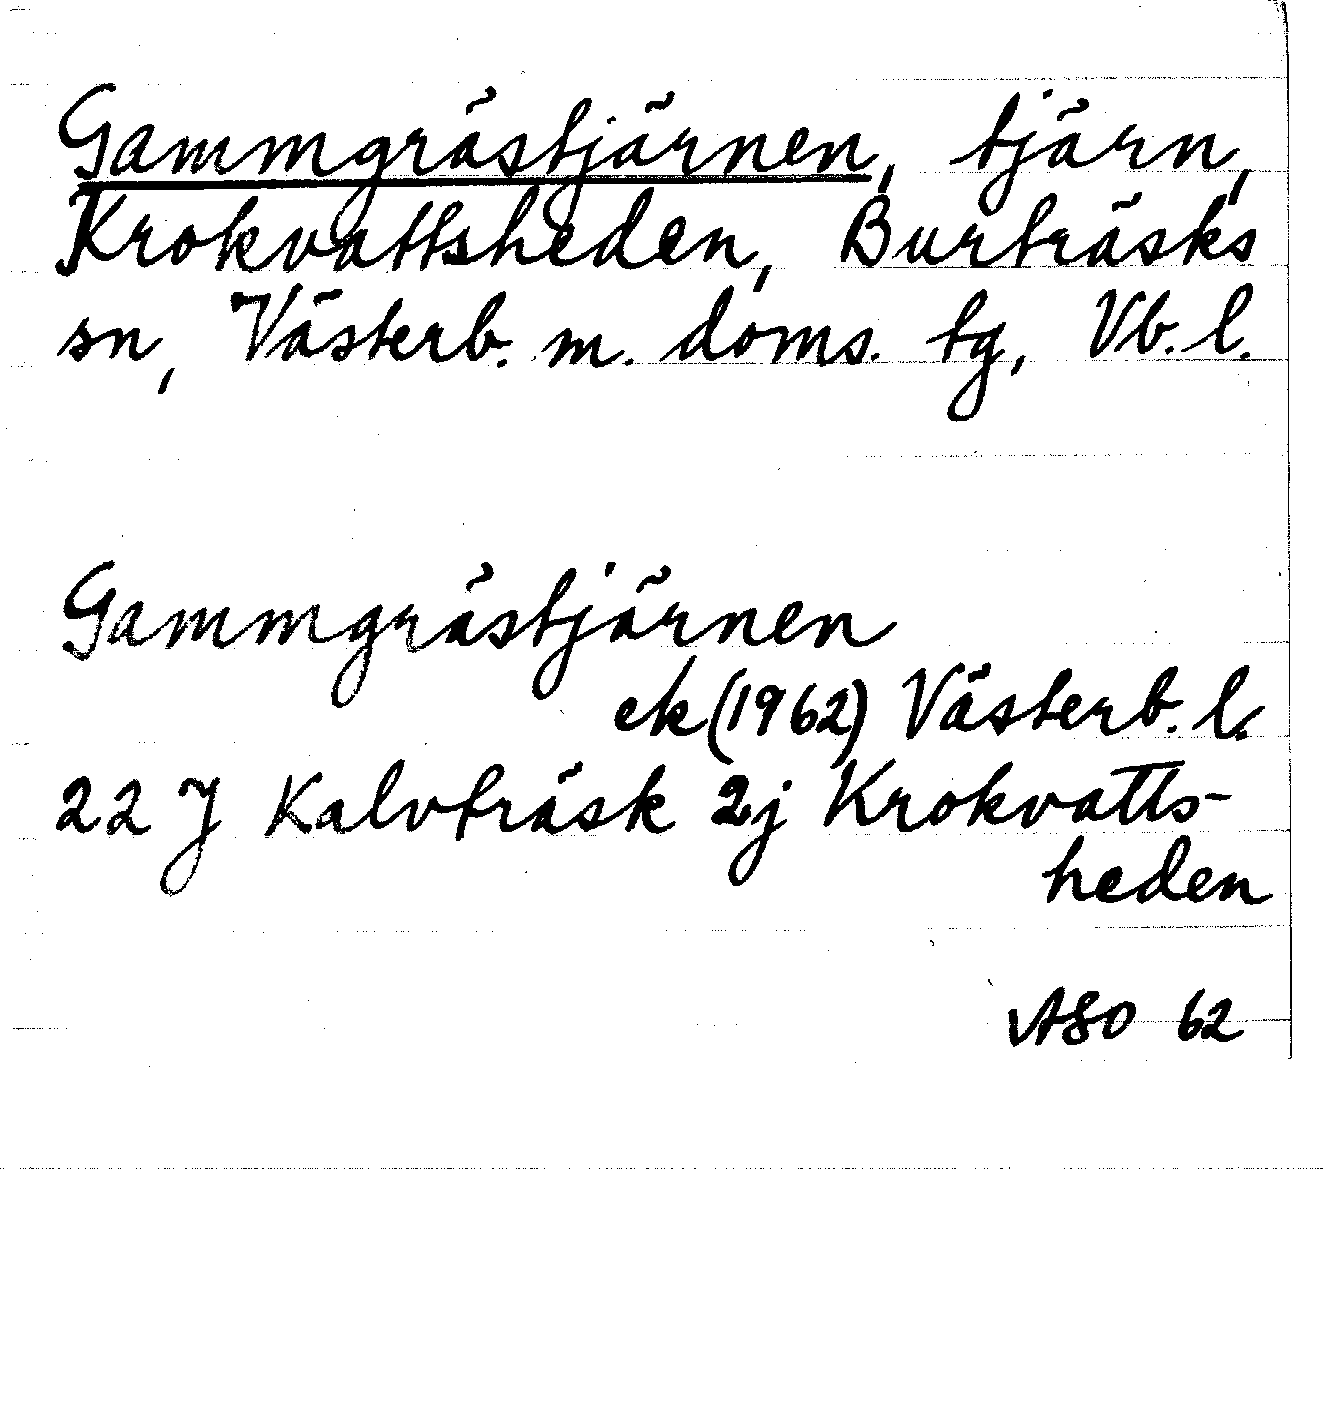 Gammgrästjärnen, tjärn,
Krokvattsheden, Burträsks
sn, Västerb. m. doms. tg, Vb. l.
Gammgrästjärnen
ek (1962) Västerb. l.
22 J Kalvträsk 2j Krokvatts-
heden
ASO 62